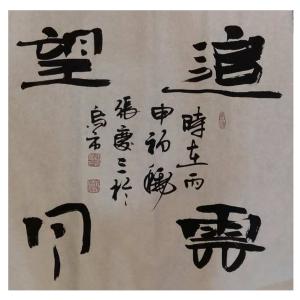 追雲
望月
時在丙
申初龝
張慶三於
烏市